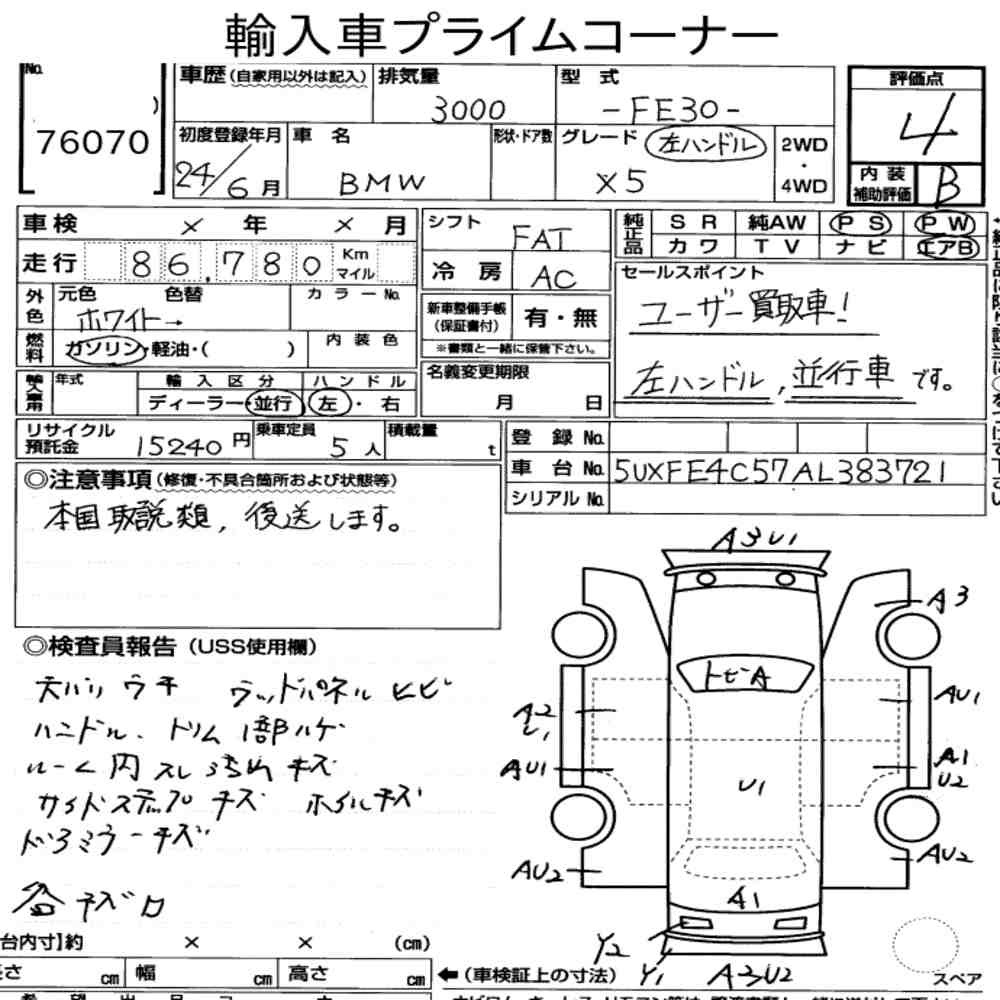 輸入車プライムコーナー
No.
76070
車歴（自家用以外は記入）
排気量
3000
型 式
-FE30-
評価点
4
初度登録年月
24/6月
車 名
BMW
形状・ドア数
グレード
左ハンドル
X5
2WD
・
4WD
内装
補助評価
B
車検 × 年 × 月
走行 86,780 Km
マイル
シフト
FAT
冷房
AC
純正品
SR 純AW PS PW
カワ TV ナビ エアB
セールスポイント
ユーザー買取車!
左ハンドル,並行車です。
外色
元色 色替
ホワイト→
カラーNo.
燃料
ガソリン・軽油・( )
内装色
新車整備手帳
（保証書付）
有・無
※書類と一緒に保管下さい。
年式
輸入区分
ディーラー・並行
ハンドル
左・右
名義変更期限
月 日
リサイクル
預託金
15240円
乗車定員
5人
積載量
t
登録No.
車台No. 5UXFE4C57AL383721
シリアルNo.
◎注意事項（修復・不具合箇所および状態等）
本国取説類, 後送します。
◎検査員報告（USS使用欄）
ウッドパネル ヒビ
ハンドル.
サイドステップ キズ ホイルキズ
ドアミラーキズ
A3U1
A3
トビA
A2
U1
AU1
AU1
A1
U2
U1
AU2
AU2
A1
Y2
Y1
A3U2
台内寸】約 × × (cm)
cm 幅 cm 高さ cm
←（車検証上の寸法）
スペア